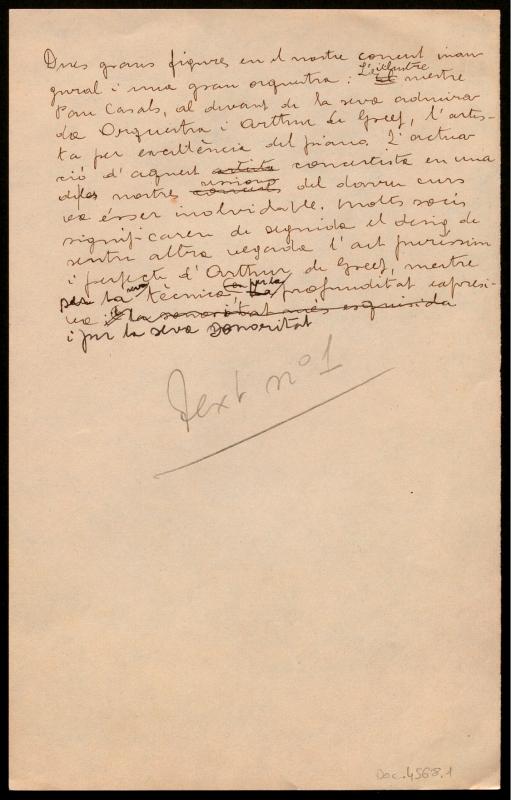 Dues grans figures en el nostre concert inau
gural i una gran orquestra: L'il·lustre mestre
Pau Casals, al davant de la seva admira
da Orquestra i Arthur de Greef, l'artis-
ta per excel·lència del piano. L'actua
ció d'aquest artista concertista en una
de les nostres sessions concerts del darrer curs
va ésser inolvidable. Molts socis
significaren de seguida el desig de
sentir altra vegada l'art puríssim
i perfecte d'Arthur de Greef, mestre
per la seva tècnica, per la profunditat expresi-
va i la sonoritat més exquisida
i per la seva sonoritat
Text nº 1
Doc. 4568.1